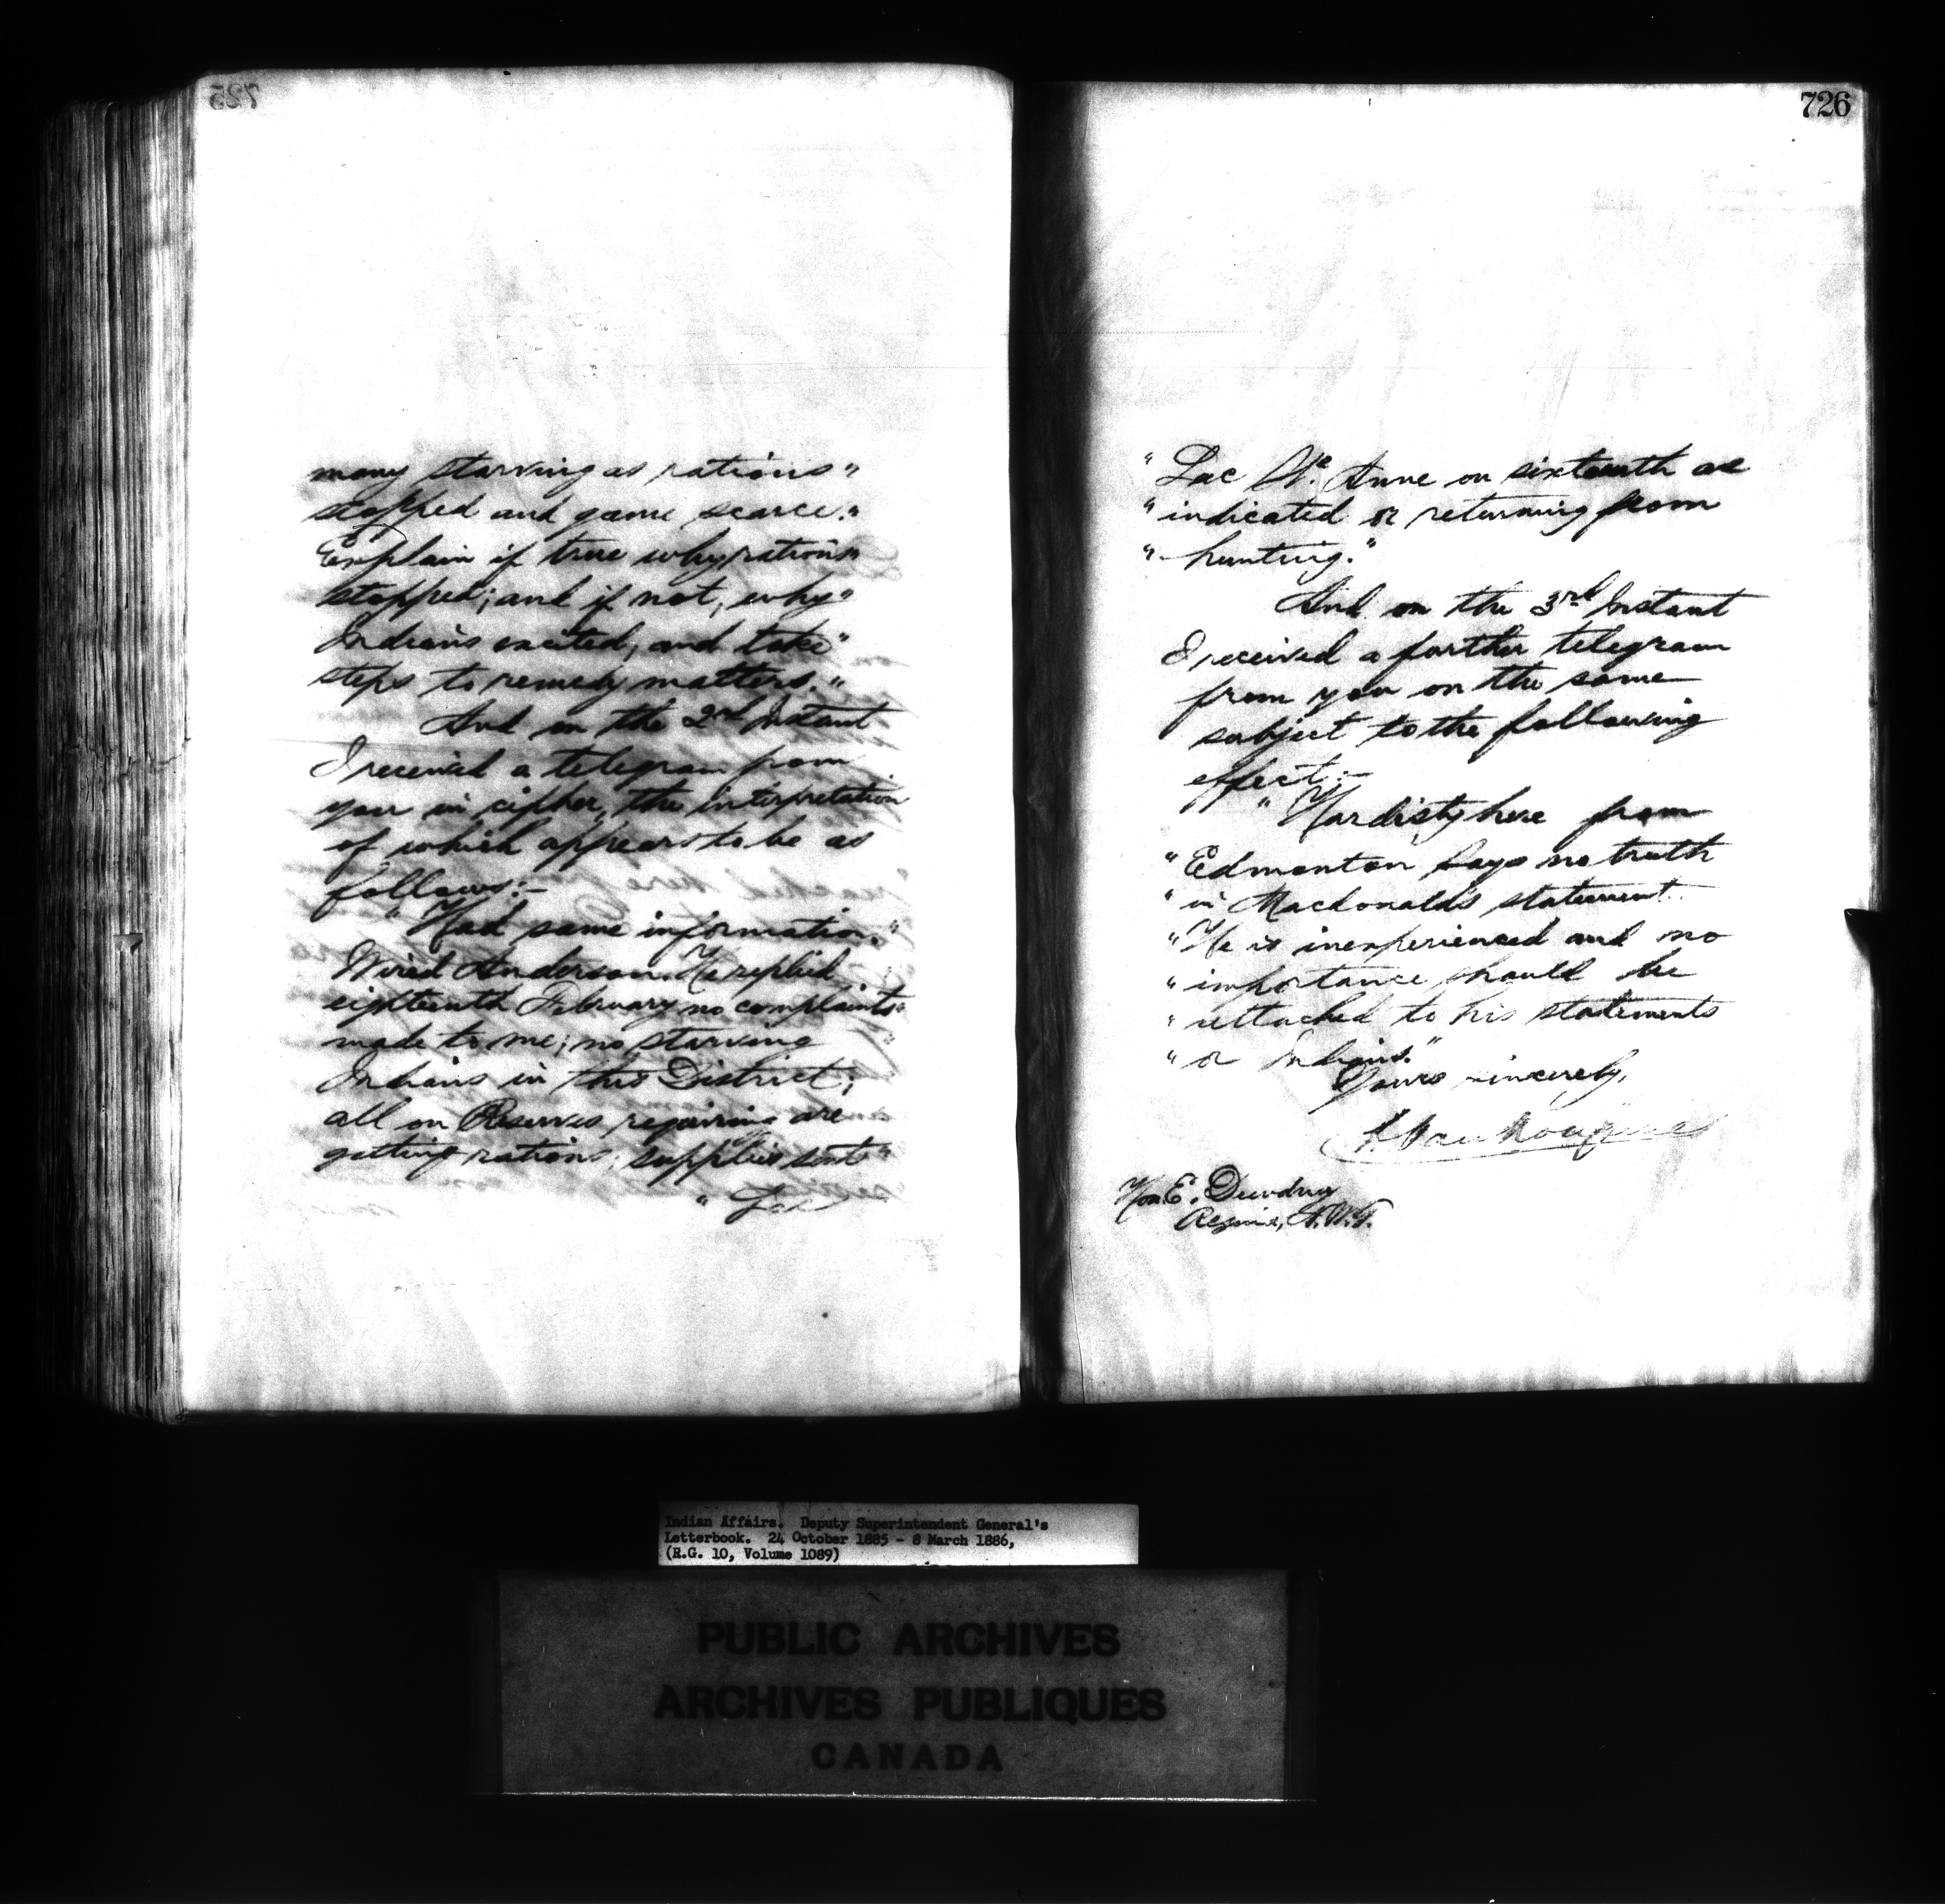 725
many starving as rations "
stopped and game scarce. "
Explain if true why rations "
stopped; and if not, why "
Indians excited, and take "
steps to remedy matters. "
And on the 2nd Instant
I received a telegram from
you in cipher, the interpretation
of which appears to be as
follows:-
" Had same information. "
Wired Anderson. He replied
eighteenth February no complaints "
made to me; no starving "
Indians in this District;
all on Reserves requiring are
getting rations; supplies sent "
" Lac
726
" Lac Ste. Anne on sixteenth as
" indicated or returning from
" hunting."
And on the 3rd Instant
I received a further telegram
from you on the same
subject to the following
effect:-
" Hardisty here from
" Edmonton says no truth
" in Macdonald's statement.
" He is inexperienced and no
" importance should be
" attached to his statements
" or Indians."
Yours sincerely,
L. Vankoughnet
Hon. E. Dewdney
Regina, N.W.T.
Indian Affairs. Deputy Superintendent General's
Letterbook. 24 October 1885 - 8 March 1886,
(R.G. 10, Volume 1089)
PUBLIC ARCHIVES
ARCHIVES PUBLIQUES
CANADA